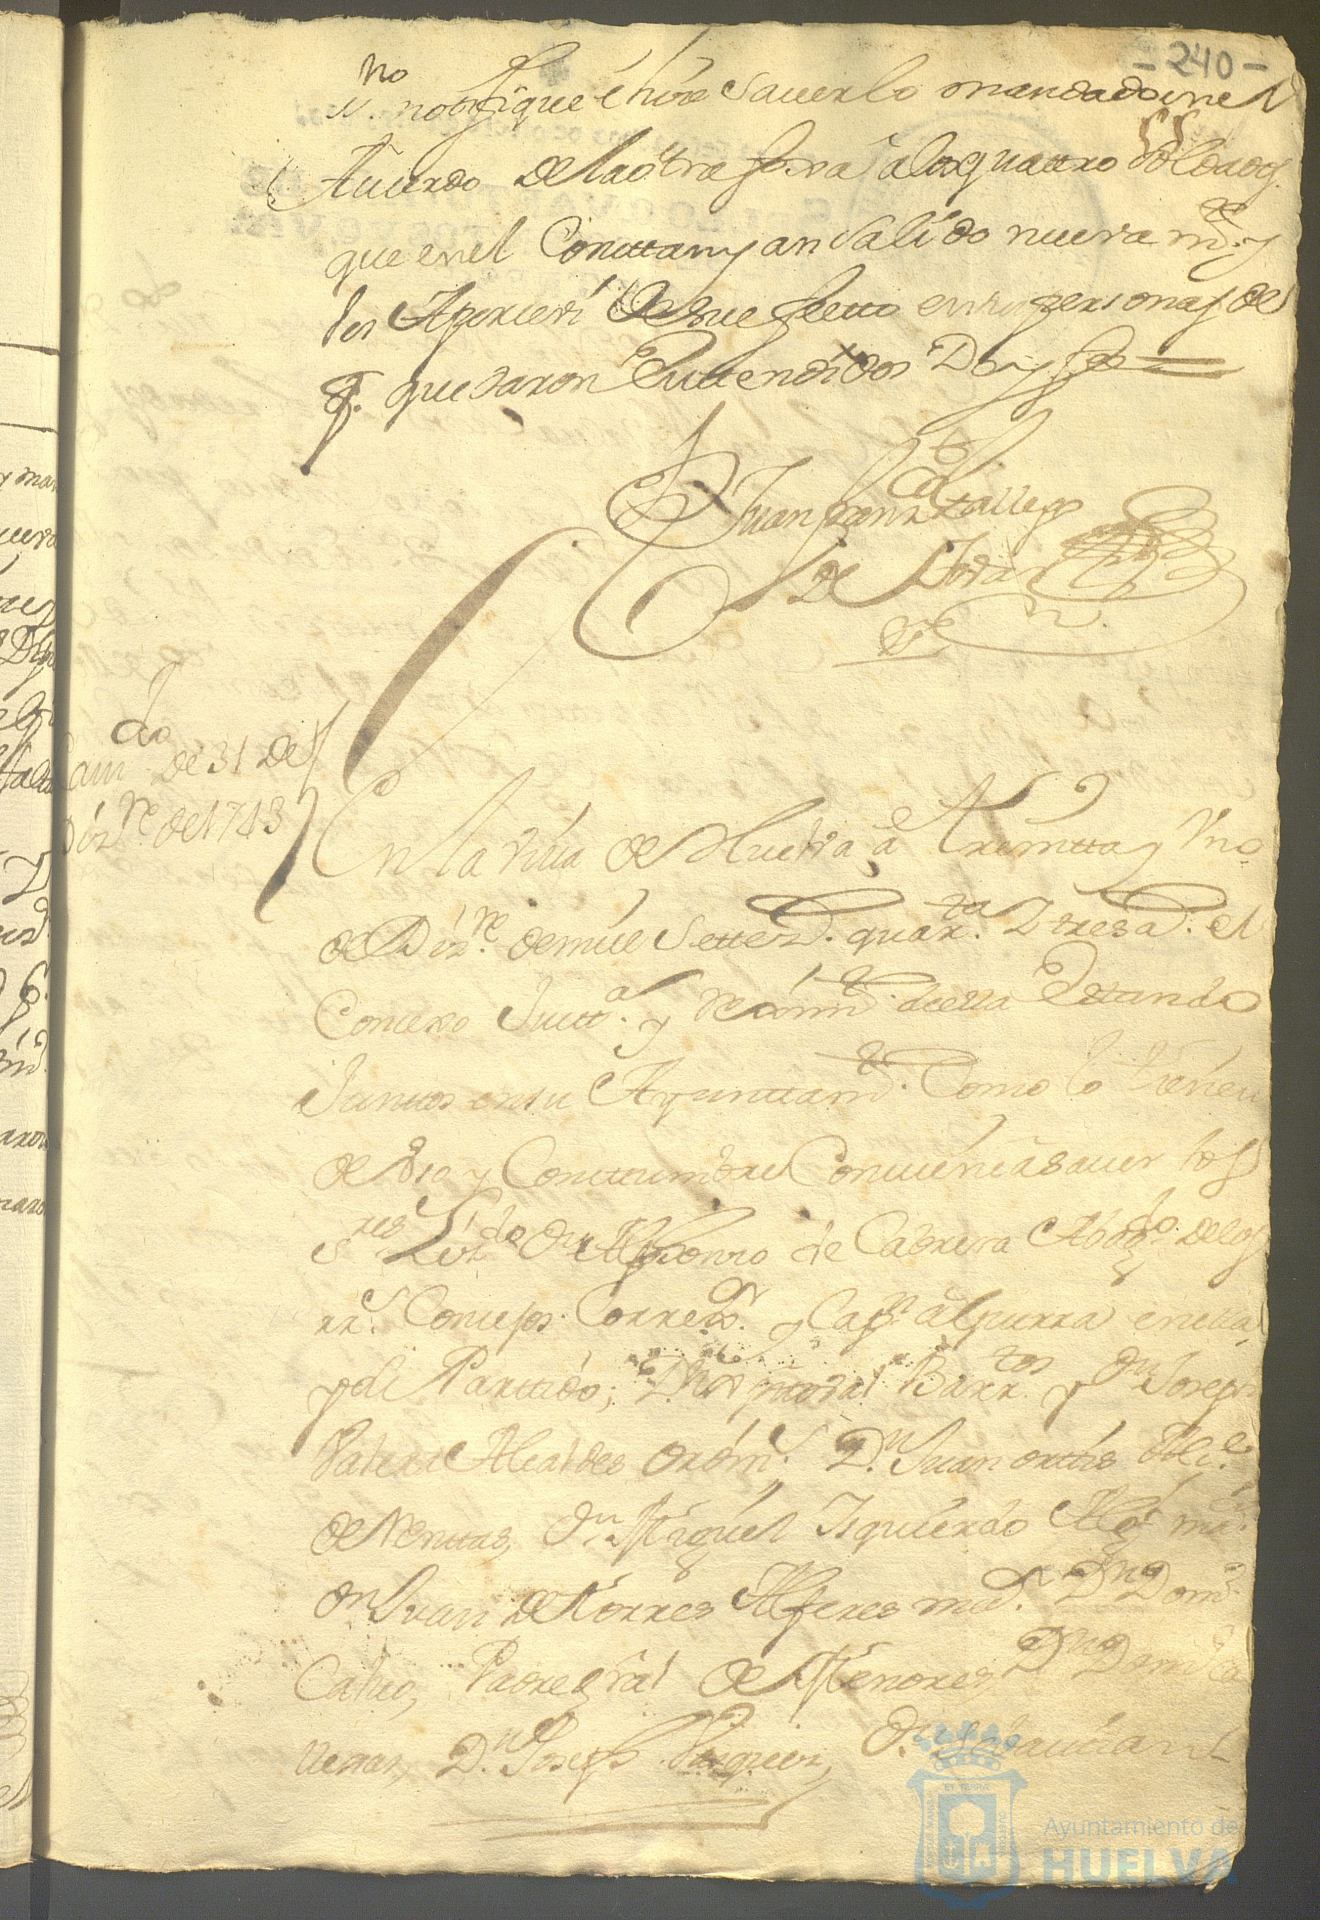 - 240 -
no
N. notifique e hize saver lo mandado en el
Acuerdo de la otra foxa a los quattro soldados
que en el Conttan y an salido nueva mte. y
los Aperceví de sue fecto en sus personas de
q. quedaron Enttendidos Doy fee =
Juan Gallego
de
Cauildo de 31 de
Dizre. de 1743
En la Villa de Huelva a Treintta y Uno
de Dizre. de mill Settezs. quarta. Y tres as. el
Concexo Justta. y Reximto. de ella Estando
Juntos en su Ayunttamto. Como lo tienen
de Uso y Costtumbre Conviene a saver los
Sres. Lizdo. Dn Alfonso de Cabrera Abogdo. de los
RRs. Consejos. Corredr. y Capn. a Guerra en ella
y su Parttido; Barrtos. y Dn Joseph
Valera Alcaldes ordins. Dn. Juan orttis
de Venttas, Dn Miguel Isquierdo Algl. mr.
Dn Juan de Torres Alferes mor. Dn Domo.
Calvo, Padre Gral de Menores, Dn
Dn. Joseph Dn.
Ayuntamiento de
HUELVA